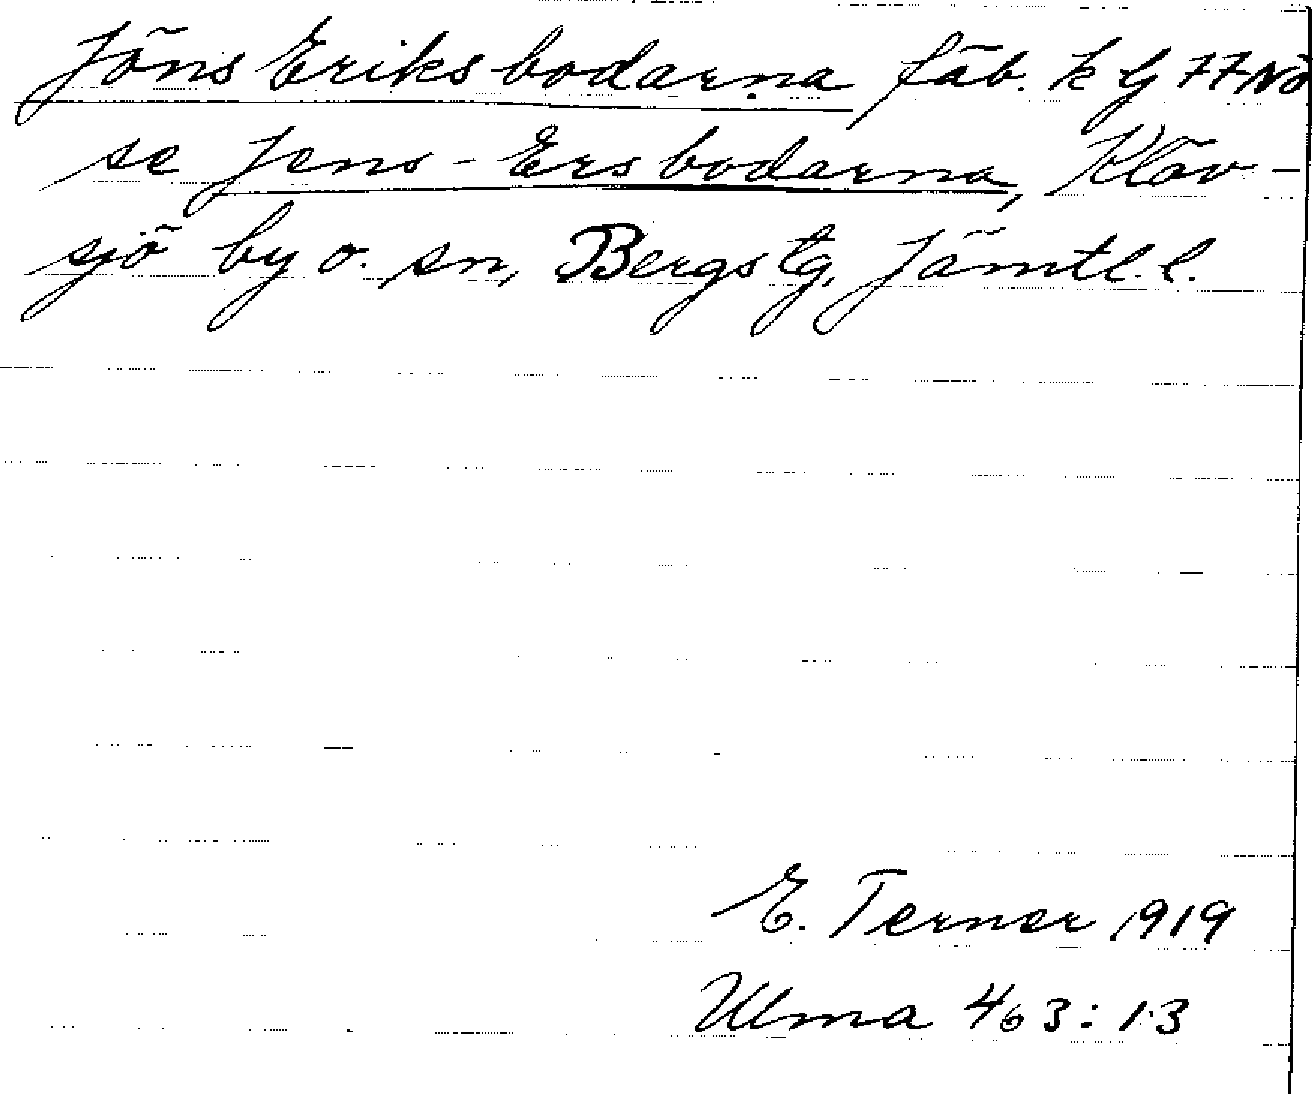 Jöns Eriksbodarna fäb. k G 77 NÖ
se Jens-Ersbodarna, Klöv-
sjö by o. sn, Bergs tg, Jämtl. l.
E. Terner 1919
Ulma 463:13